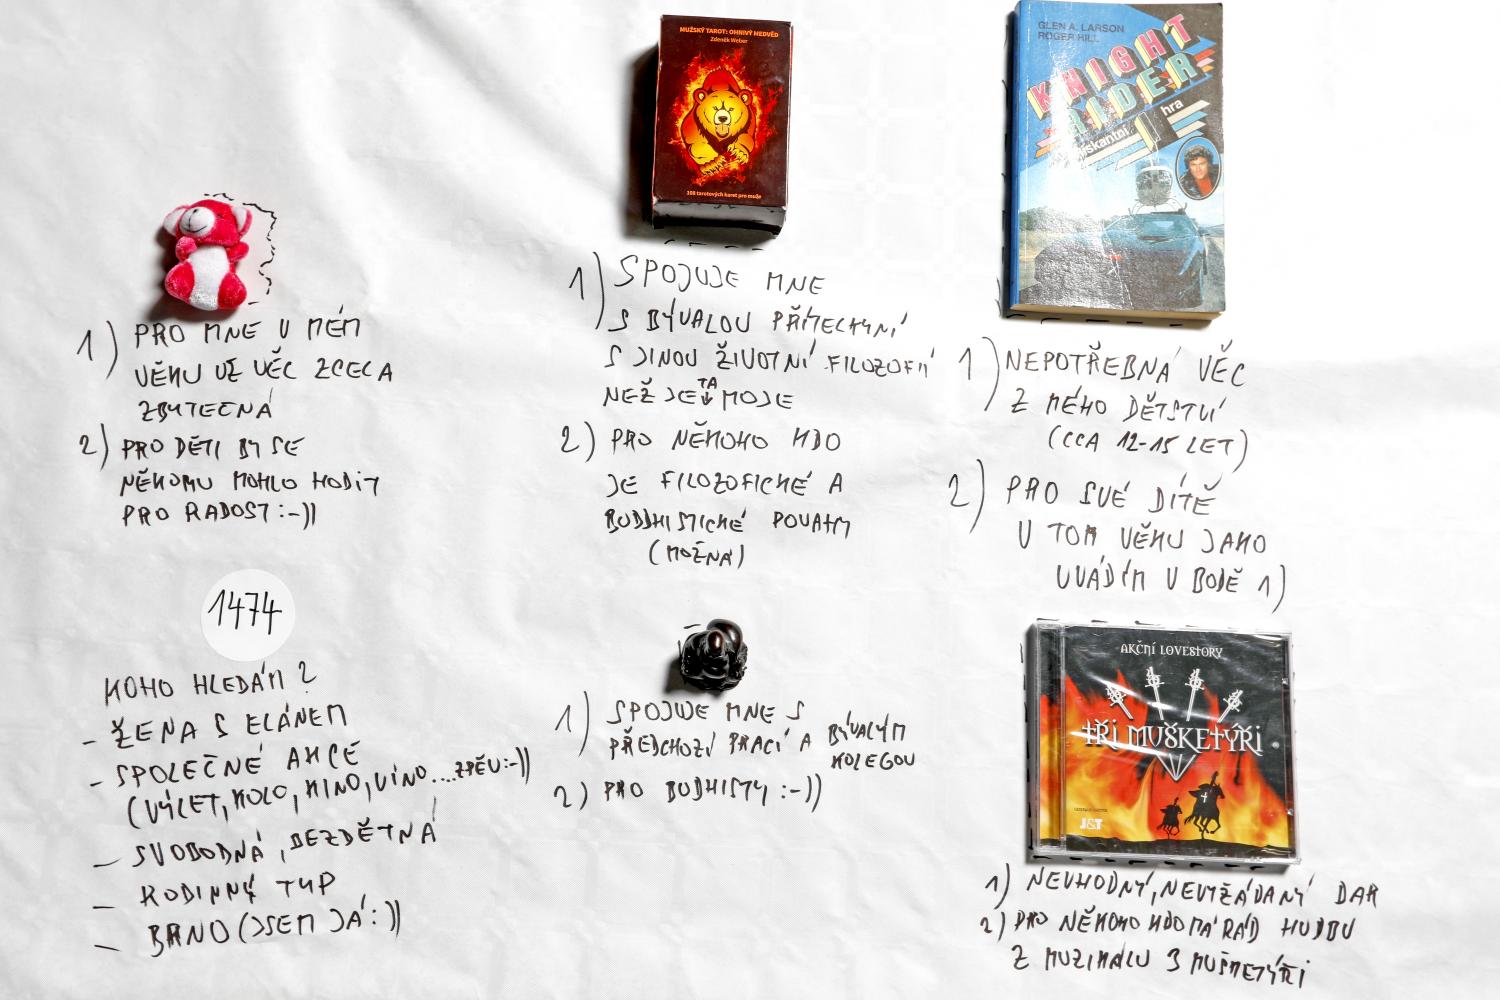 MUŽSKÝ TAROT: OHNIVÝ MEDVĚD
Zdeněk Weber
108 tarotových karet pro muže
GLEN A. LARSON
ROGER HILL
KNIGHT
RIDER
riskantní hra
1) PRO MNE V MÉM
VĚKU UŽ VĚC ZCELA
ZBYTEČNÁ
2) PRO DĚTI BY SE
NĚKOMU MOHLO HODIT
PRO RADOST :-))
1) SPOJUJE MNE
S BÝVALOU PŘÍTELKYNÍ
S JINOU ŽIVOTNÍ FILOZOFIÍ
NEŽ JE TA MOJE
2) PRO NĚKOHO KDO
JE FILOZOFICKÉ A
BUDDHISTICKÉ POVAHY
(MOŽNÁ)
1) NEPOTŘEBNÁ VĚC
Z MÉHO DĚTSTVÍ
(CCA 12-15 LET)
2) PRO SVÉ DÍTĚ
V TOM VĚKU JAKO
UVÁDÍM V BODĚ 1)
1474
KOHO HLEDÁM?
- ŽENA S ELÁNEM
- SPOLEČNÉ AKCE
(VÝLET, KOLO, KINO, VÍNO...ZPĚV:-))
- SVOBODNÁ, BEZDĚTNÁ
- RODINNÝ TYP
- BRNO (JSEM JÁ:))
1) SPOJUJE MNE S
PŘEDCHOZÍ PRACÍ A BÝVALÝM
KOLEGOU
2) PRO BUDHISTY :-))
AKČNÍ LOVESTORY
TŘI MUŠKETÝŘI
J&T
1) NEVHODNÝ, NEVYŽÁDANÝ DAR
2) PRO NĚKOHO KDO MÁ RÁD HUDBU
Z MUZIKÁLU 3 MUŠKETÝŘI